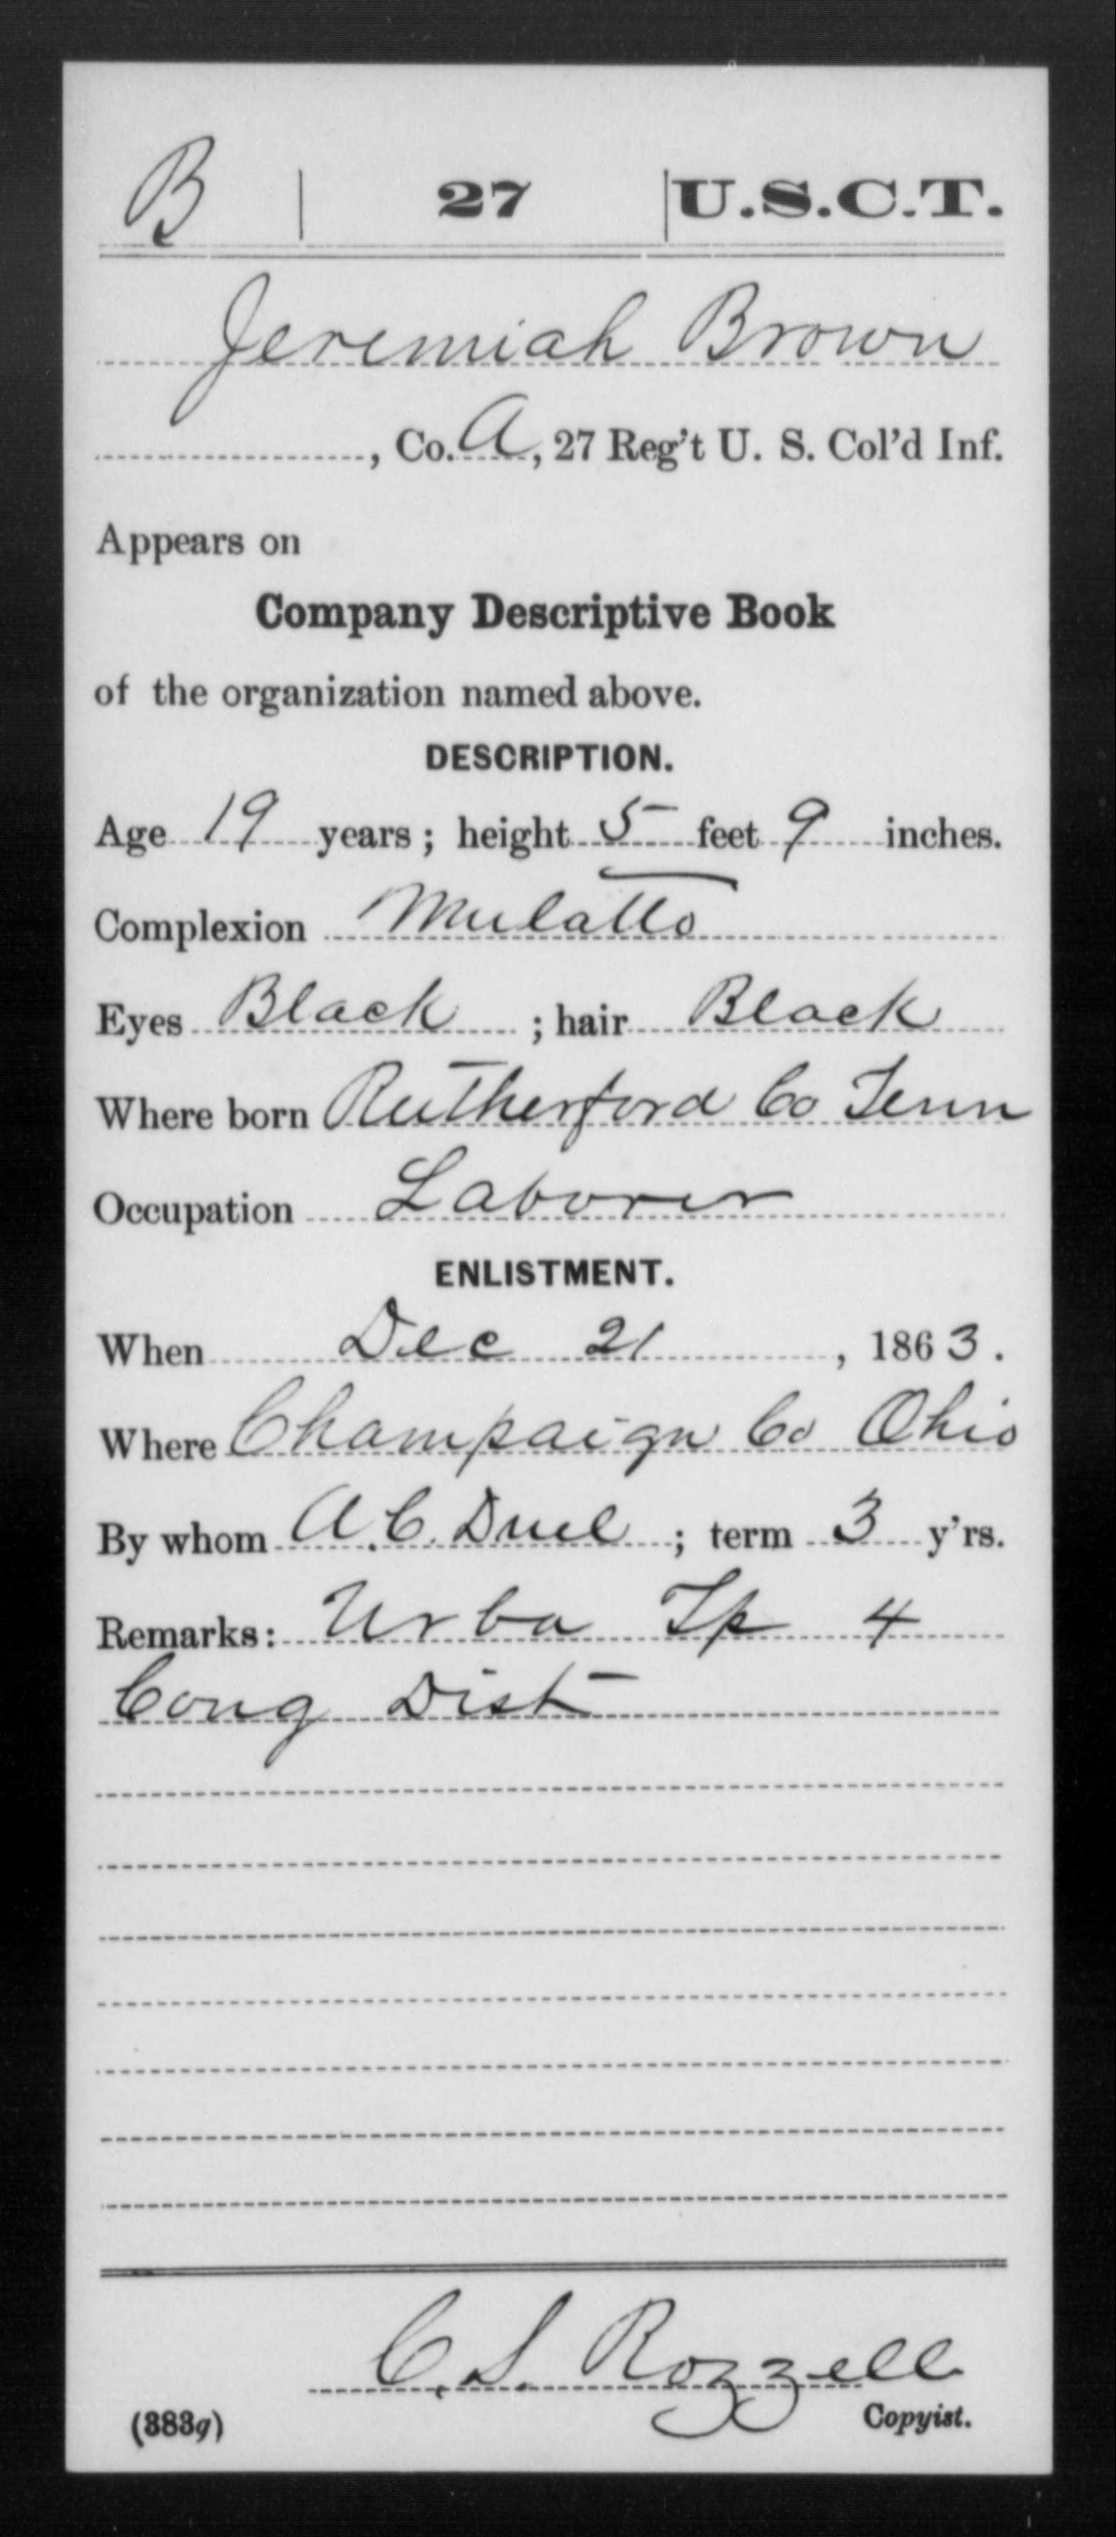 B | 27 | U.S.C.T.
Jeremiah Brown
, Co. A, 27 Reg't U. S. Col'd Inf.
Appears on
Company Descriptive Book
of the organization named above.
DESCRIPTION.
Age 19 years; height 5 feet 9 inches.
Complexion Mulatto
Eyes Black ; hair Black
Where born Rutherford Co Tenn
Occupation Laborer
ENLISTMENT.
When Dec 21, 1863.
Where Champaign Co Ohio
By whom A.C. Duel ; term 3 y'rs.
Remarks: Urba Tp 4
Cong Dist
C.S. Rozzell
(383g) Copyist.